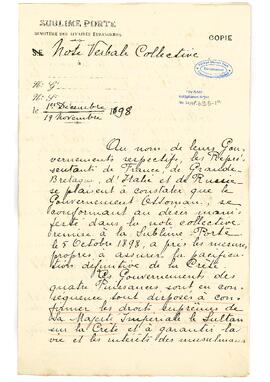 SUBLIME PORTE
MINISTÈRE DES AFFAIRES ÉTRANGÈRES
COPIE
Note Verbale Collective
No G
No S
le 1er Décembre / 19 Novembre 1898
Au nom de leurs Gou-
vernements respectifs, les Repré-
sentants de France, de Grande-
Bretagne, d'Italie et de Russie
se plaisent à constater que le
Gouvernement Ottoman, se
conformant au désir mani-
festé dans la note collective
remise à la Sublime Porte
le 5 Octobre 1898, a pris les mesures
propres à assurer la pacifica-
tion définitive de la Crète.
Les Gouvernements des
quatre Puissances sont en con-
séquence sont disposés à con-
firmer les droits suprêmes de
Sa Majesté Impériale le Sultan
sur la Crète et à garantir la
vie et les intérêts des musulmans